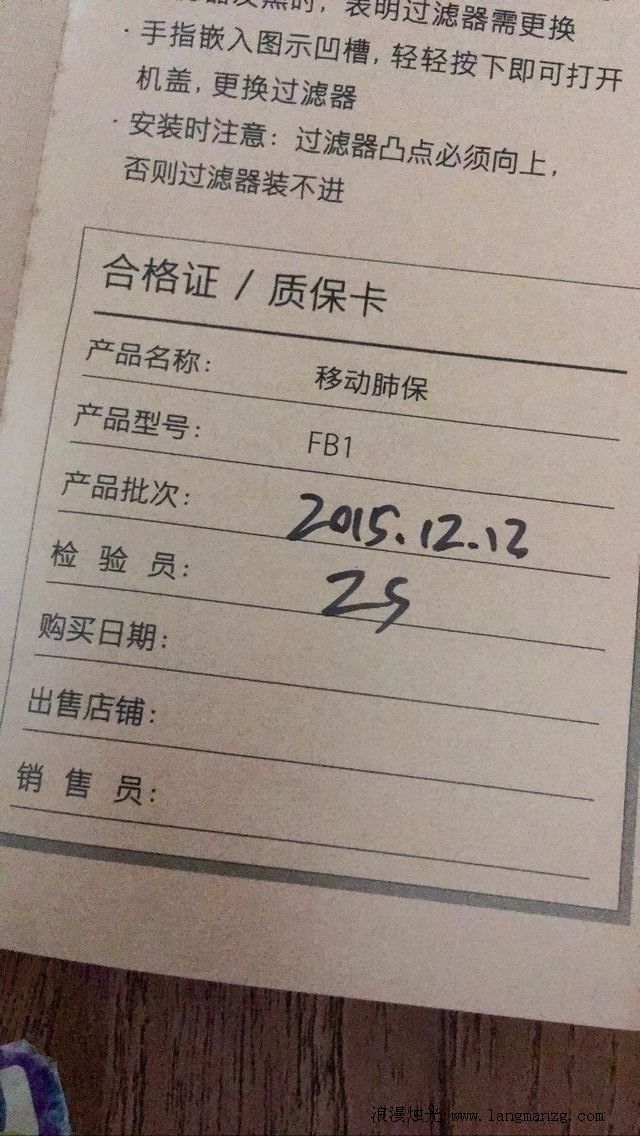 时，表明过滤器需更换
·手指嵌入图示凹槽，轻轻按下即可打开
机盖，更换过滤器
·安装时注意：过滤器凸点必须向上，
否则过滤器装不进
合格证 / 质保卡
产品名称： 移动肺保
产品型号： FB1
产品批次： 2015.12.12
检 验 员： ZS
购买日期：
出售店铺：
销 售 员：
浪漫烛光 www.langmanzg.com